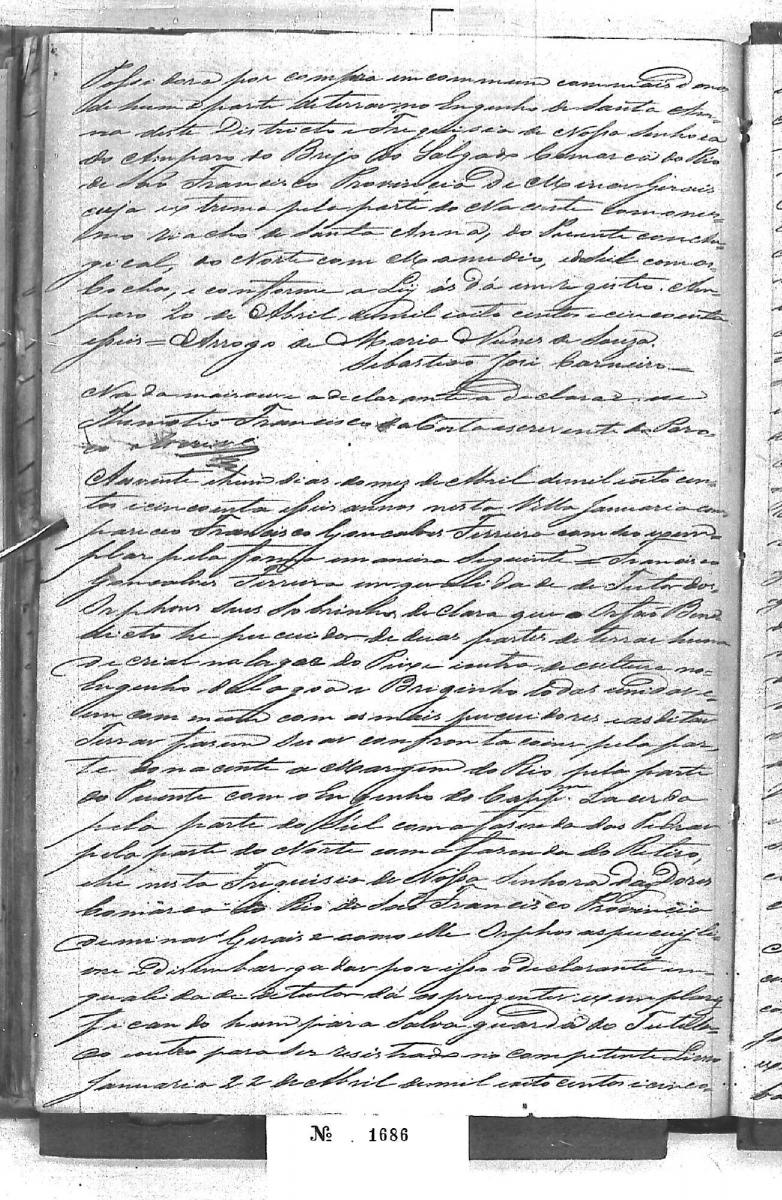 Possuidora por compra em commum com mais donos
de huma parte de terras no Engenho de Santa An-
na deste Districto e Freguisia de Nossa Senhora
do Amparo do Brejo do Salgado Comarca do Rio
de São Francisco Provincia de Minas Gerais
cuja extrema pela parte do Nacente com o mes-
mo riacho de Santa Anna, do Puente com
do Norte com Mamedio, e do Sul com os
Cochos, e conforme a Ley ás dá em registro. Am-
paro 20 de Abril de mil oito centos e cincoenta
e seis = Arrogo de Maria Nunes de Souza.
Sebastião José Carneiro =
Nada mais que a declarante declara eu
Francisco da Costa escrevente do Paro-
co
Aos vinte e hum dias do mez de Abril de mil oito cen-
tos e cincoenta e seis annos nesta Villa Januaria com
pareceo Francisco Gonçalves Ferreira com dois exem
plar pela forma e maneira Seguinte = Francisco
Gonçalves Ferreira em qualidade de Tutor dos
Orphons seus Sobrinhos declara que o Orfão Bene
dicto he pucuidor de duas partes de terras huma
de criar na lagoa do Peixe e outra de cultura no
Engenho da Lagoa e Brejinho todas unidas e
em commum com os mais pucuidores e as ditas
Terras fasem suas confrontacoens pela par-
te do nacente a Margem do Rio, pela parte
do Puente com o Engenho do Cappm. Lacerda
pela parte do Sul com a fasenda das Pedras
pela parte do Norte com a fasenda do Retiro,
e he nesta Freguisia de Nossa Senhora das Dores
Comarca do Rio de São Francisco Provincia
de Minas Gerais e como elle Orphao as pucui li-
vre e Disembargadas por isso o declarante em
qualidade de tutor dá os prezentes exemplares
ficando hum para Salva guarda do Tutella-
do e outro para ser resistrado no competente Livro
Januaria 22 de Abril de mil oito centos e cinco-
Nº 1686